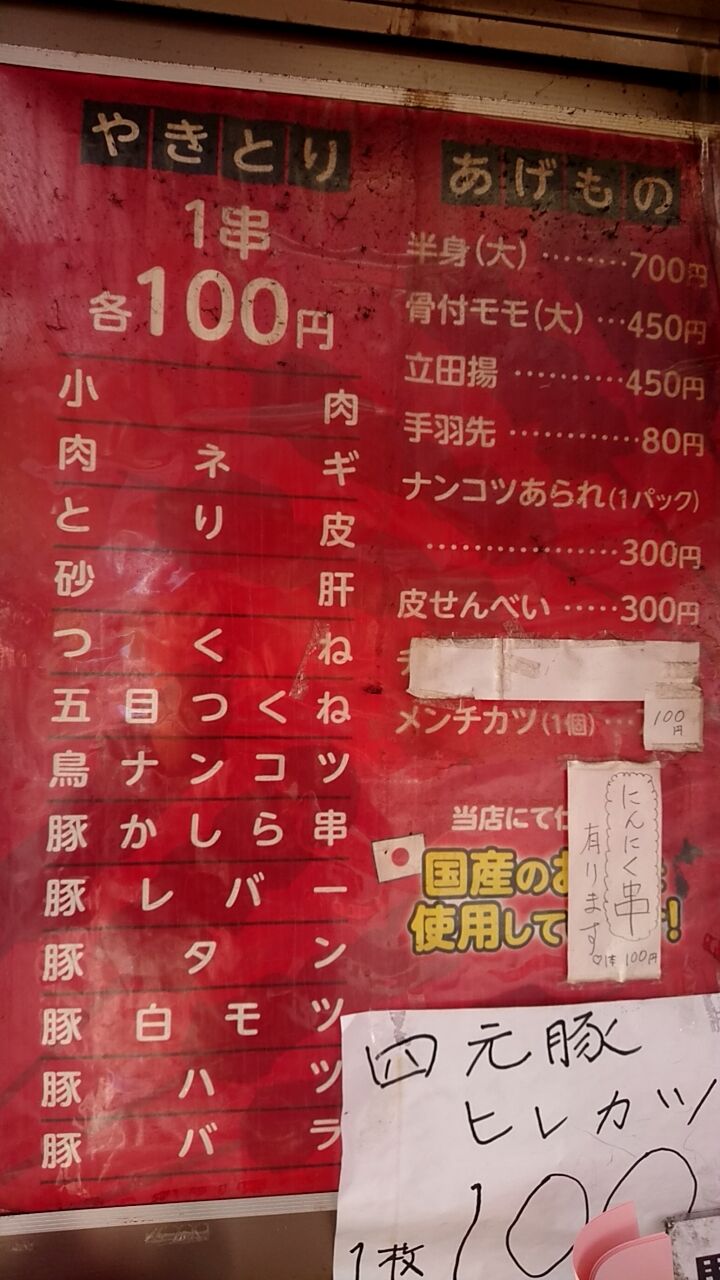 やきとり
1串
各100円
小肉
肉ネギ
とり皮
砂肝
つくね
五目つくね
鳥ナンコツ
豚かしら串
豚レバー
豚タン
豚白モツ
豚ハツ
豚バラ
あげもの
半身(大)………700円
骨付モモ(大)…450円
立田揚…………450円
手羽先…………80円
ナンコツあられ(1パック)
…………………300円
皮せんべい……300円
メンチカツ(1個)…
100円
当店にて
国産の
使用して
!
にんにく串
有ります。
1本100円
四元豚
ヒレカツ
1枚100